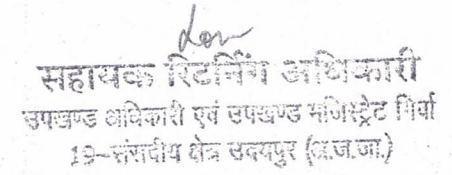 सहायक रिटर्निंग अधिकारी
उपखण्ड अधिकारी एवं उपखण्ड मजिस्ट्रेट गिर्वा
19-संसदीय क्षेत्र उदयपुर (अ.ज.जा.)